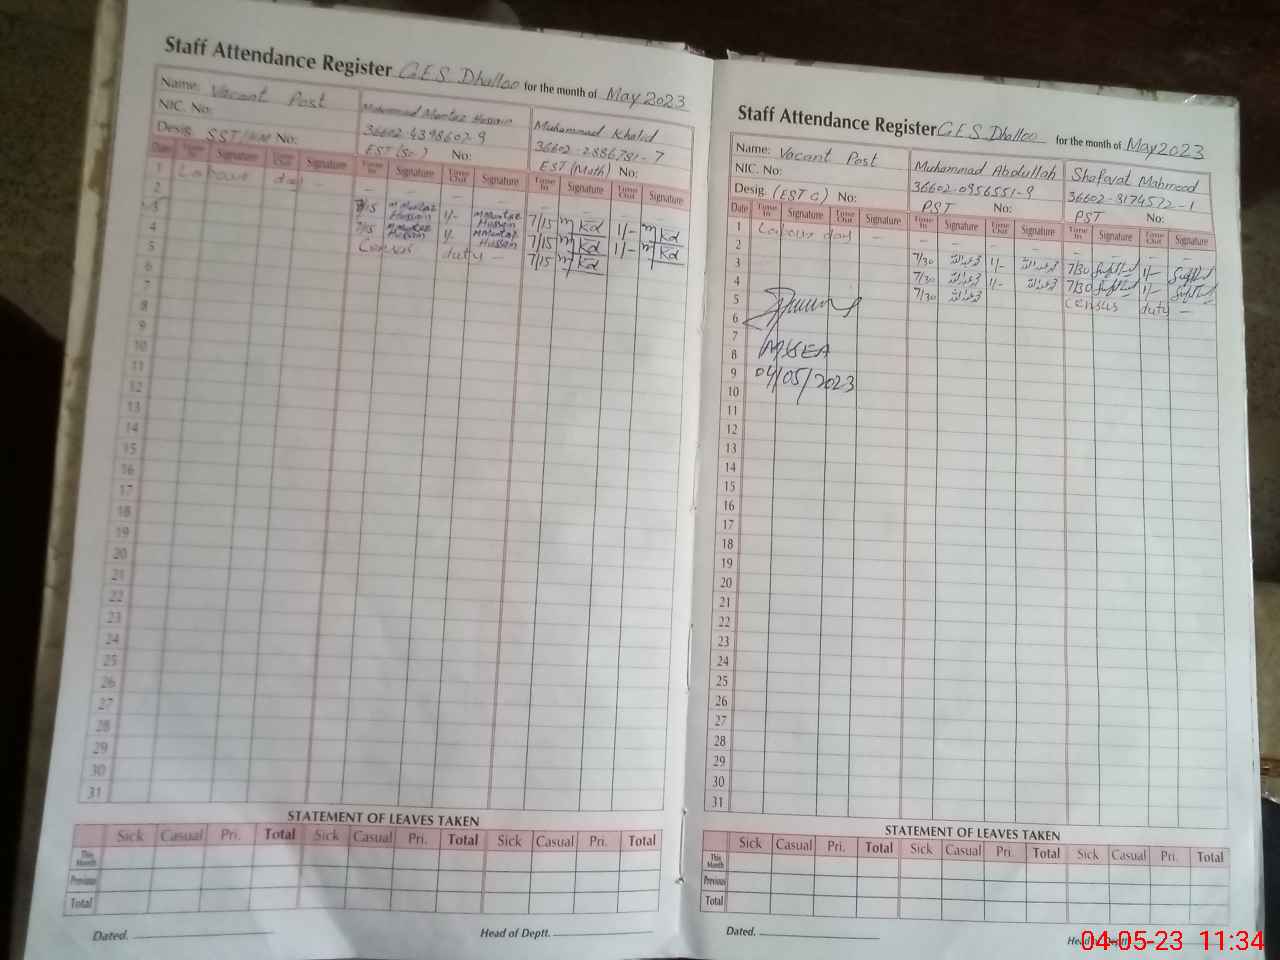 Staff Attendance Register G.E.S Dhalloo for the month of May 2023
Name: Vacant Post
Muhammad Mumtaz Hussain
Muhammad Khalid
NIC. No:
36602-4398602-9
36602-2886781-7
Desig. SST No:
EST (Sc) No:
EST (Math) No:
Date Time In Signature Time Out Signature Time In Signature Time Out Signature Time In Signature Time Out Signature
1 Labour day —
2
3 7/15 M Mumtaz Hussain 1/- M Mumtaz Hussain 7/15 1/-
4 7/15 M Mumtaz Hussain 1/- M Mumtaz Hussain 7/15 1/-
5 Census duty — 7/15
6
7
8
9
10
11
12
13
14
15
16
17
18
19
20
21
22
23
24
25
26
27
28
29
30
31
STATEMENT OF LEAVES TAKEN
Sick Casual Pri. Total Sick Casual Pri. Total Sick Casual Pri. Total
This Month
Previous
Total
Dated.
Head of Deptt.
Staff Attendance Register G.E.S Dhalloo for the month of May 2023
Name: Vacant Post
Muhammad Abdullah
Shafqat Mahmood
NIC. No:
36602-0956551-9
36602-8174572-1
Desig. (EST C) No:
PST No:
PST No:
Date Time In Signature Time Out Signature Time In Signature Time Out Signature Time In Signature Time Out Signature
1 Labour day —
2
3 7/30 1/- 7/30 1/-
4 7/30 1/- 7/30 1/-
5 7/30 Census duty —
6
7
8 MEA
9 04/05/2023
10
11
12
13
14
15
16
17
18
19
20
21
22
23
24
25
26
27
28
29
30
31
STATEMENT OF LEAVES TAKEN
Sick Casual Pri. Total Sick Casual Pri. Total Sick Casual Pri. Total
This Month
Previous
Total
Dated.
04-05-23 11:34